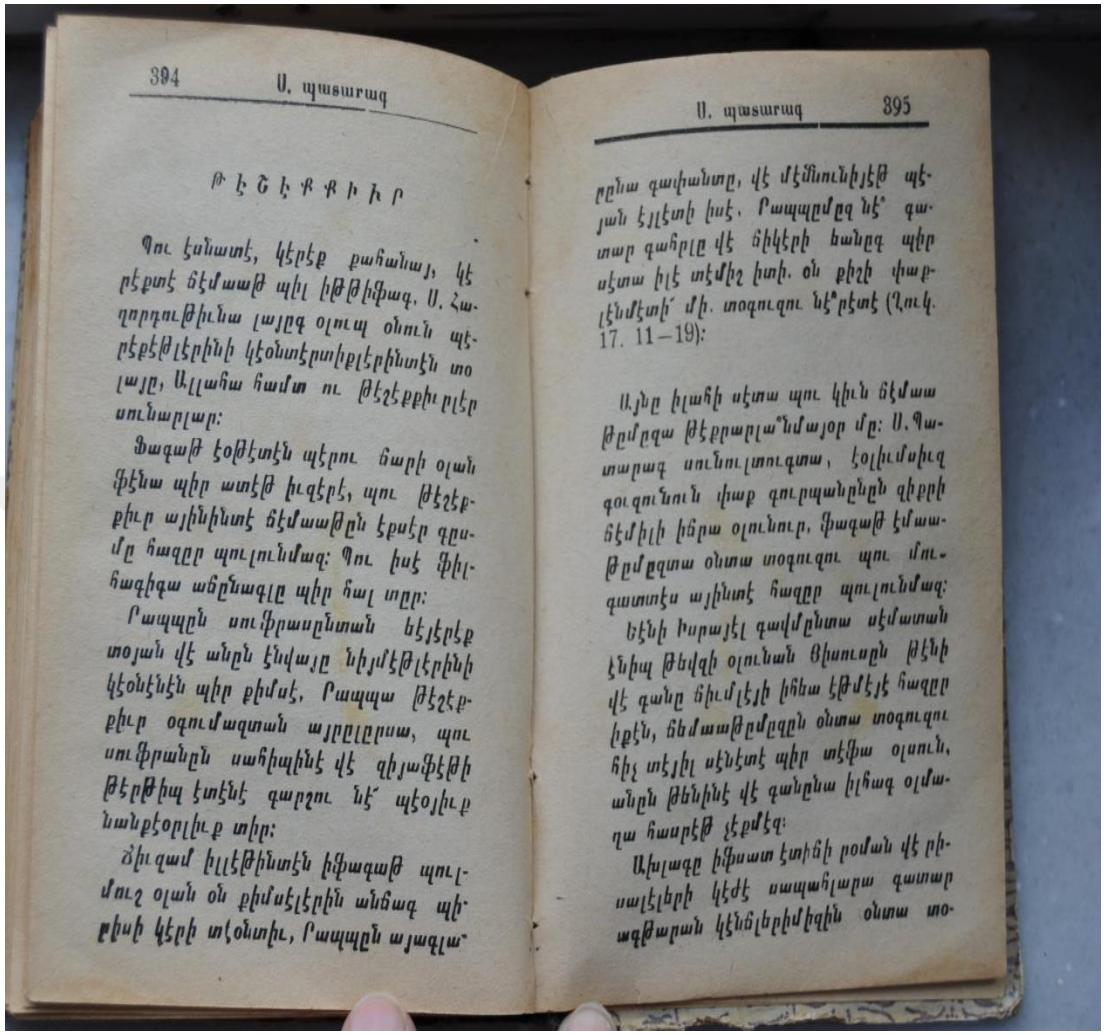 394
Ս. պատարագ
ԹԷՇԷՔՔԻՒՐ
Պու էսնատէ, կէրէք քահանայ, կէ
րէքտէ ճէմաաթ պիլ իթթիֆագ, Ս. Հա-
ղորդութիւնա լայըգ օլուպ օնուն պէ-
րէքէթլէրինի կէօնտէրտիքլէրինտէն տօ
լայը, Ալլահա համտ ու թէշէքքիւրլէր
սունարլար:
Ֆագաթ էօթէտէն պէրու ճարի օլան
ֆէնա պիր ատէթ իւզէրէ, պու թէշէք-
քիւր այինինտէ ճէմաաթըն էքսէր գըս-
մը հազըր պուլունմազ: Պու իսէ ֆիլ-
հագիգա աճընագլը պիր հալ տըր:
Րապպըն սուֆրասընտան եէյէրէք
տօյան վէ անըն էնվայը նիյմէթլէրինի
կէօնէնէն պիր քիմսէ, Րապպա թէշէք-
քիւր օգումազտան այրըլըրսա, պու
սուֆրանըն սահիպինէ վէ զիյաֆէթի
թէրթիպ էտէնէ գարշու նէ՜ պէօյիւք
նանքէօրլիւք տիր:
Ճիւզամ իլլէթինտէն իֆագաթ պուլ-
մուշ օլան օն քիմսէլէրին անճագ պի-
րիսի կէրի տէօնտիւ, Րապպըն այագլա-
Ս. պատարագ
395
րընա գափանտը, վէ մէմնունիյէթ պէ-
յան էյլէտի իսէ, Րապպըմըզ նէ՞ գա-
տար գահրլը վէ ճիկէրի եանըգ պիր
սէտա իլէ տէմիշ իտի. օն քիշի փաք-
լէնմէտի՞ մի. տօգուզու նէ՞րէտէ (Ղուկ.
17. 11—19):
Այնը իլահի սէտա պու կիւն ճէմաա
թըմըզա թէքրարլա՞նմայօր մը: Ս.Պա-
տարագ սունուլտուգտա, էօլիւմսիւզ
գուզունուն փաք գուրպանընըն զիքրի
ճէմիլի իճրա օլունուր, ֆագաթ էմաա-
թըմըզտա օնտա տօգուզու պու մու-
գատտէս այինտէ հազըր պուլունմազ:
Եէնի Իսրայէլ գավմընտա սէմատան
էնիպ թեվզի օլունան Յիսուսըն թէնի
վէ գանը ճիւմլէյի իհեա էթմէյէ հազըր
իքէն, ճեմաաթըմըզըն օնտա տօգուզու
հիչ տէյիլ սէնէտէ պիր տէֆա օլսուն,
անըն թենինէ վէ գանընա իլհագ օլմա-
ղա հասրէթ չէքմէզ:
Ախլագը իֆսատ էտիճի րօման վէ րի-
սալէլերի կէժէ սապահլարա գատար
ագթարան կէնճլերիմիզին օնտա տօ-